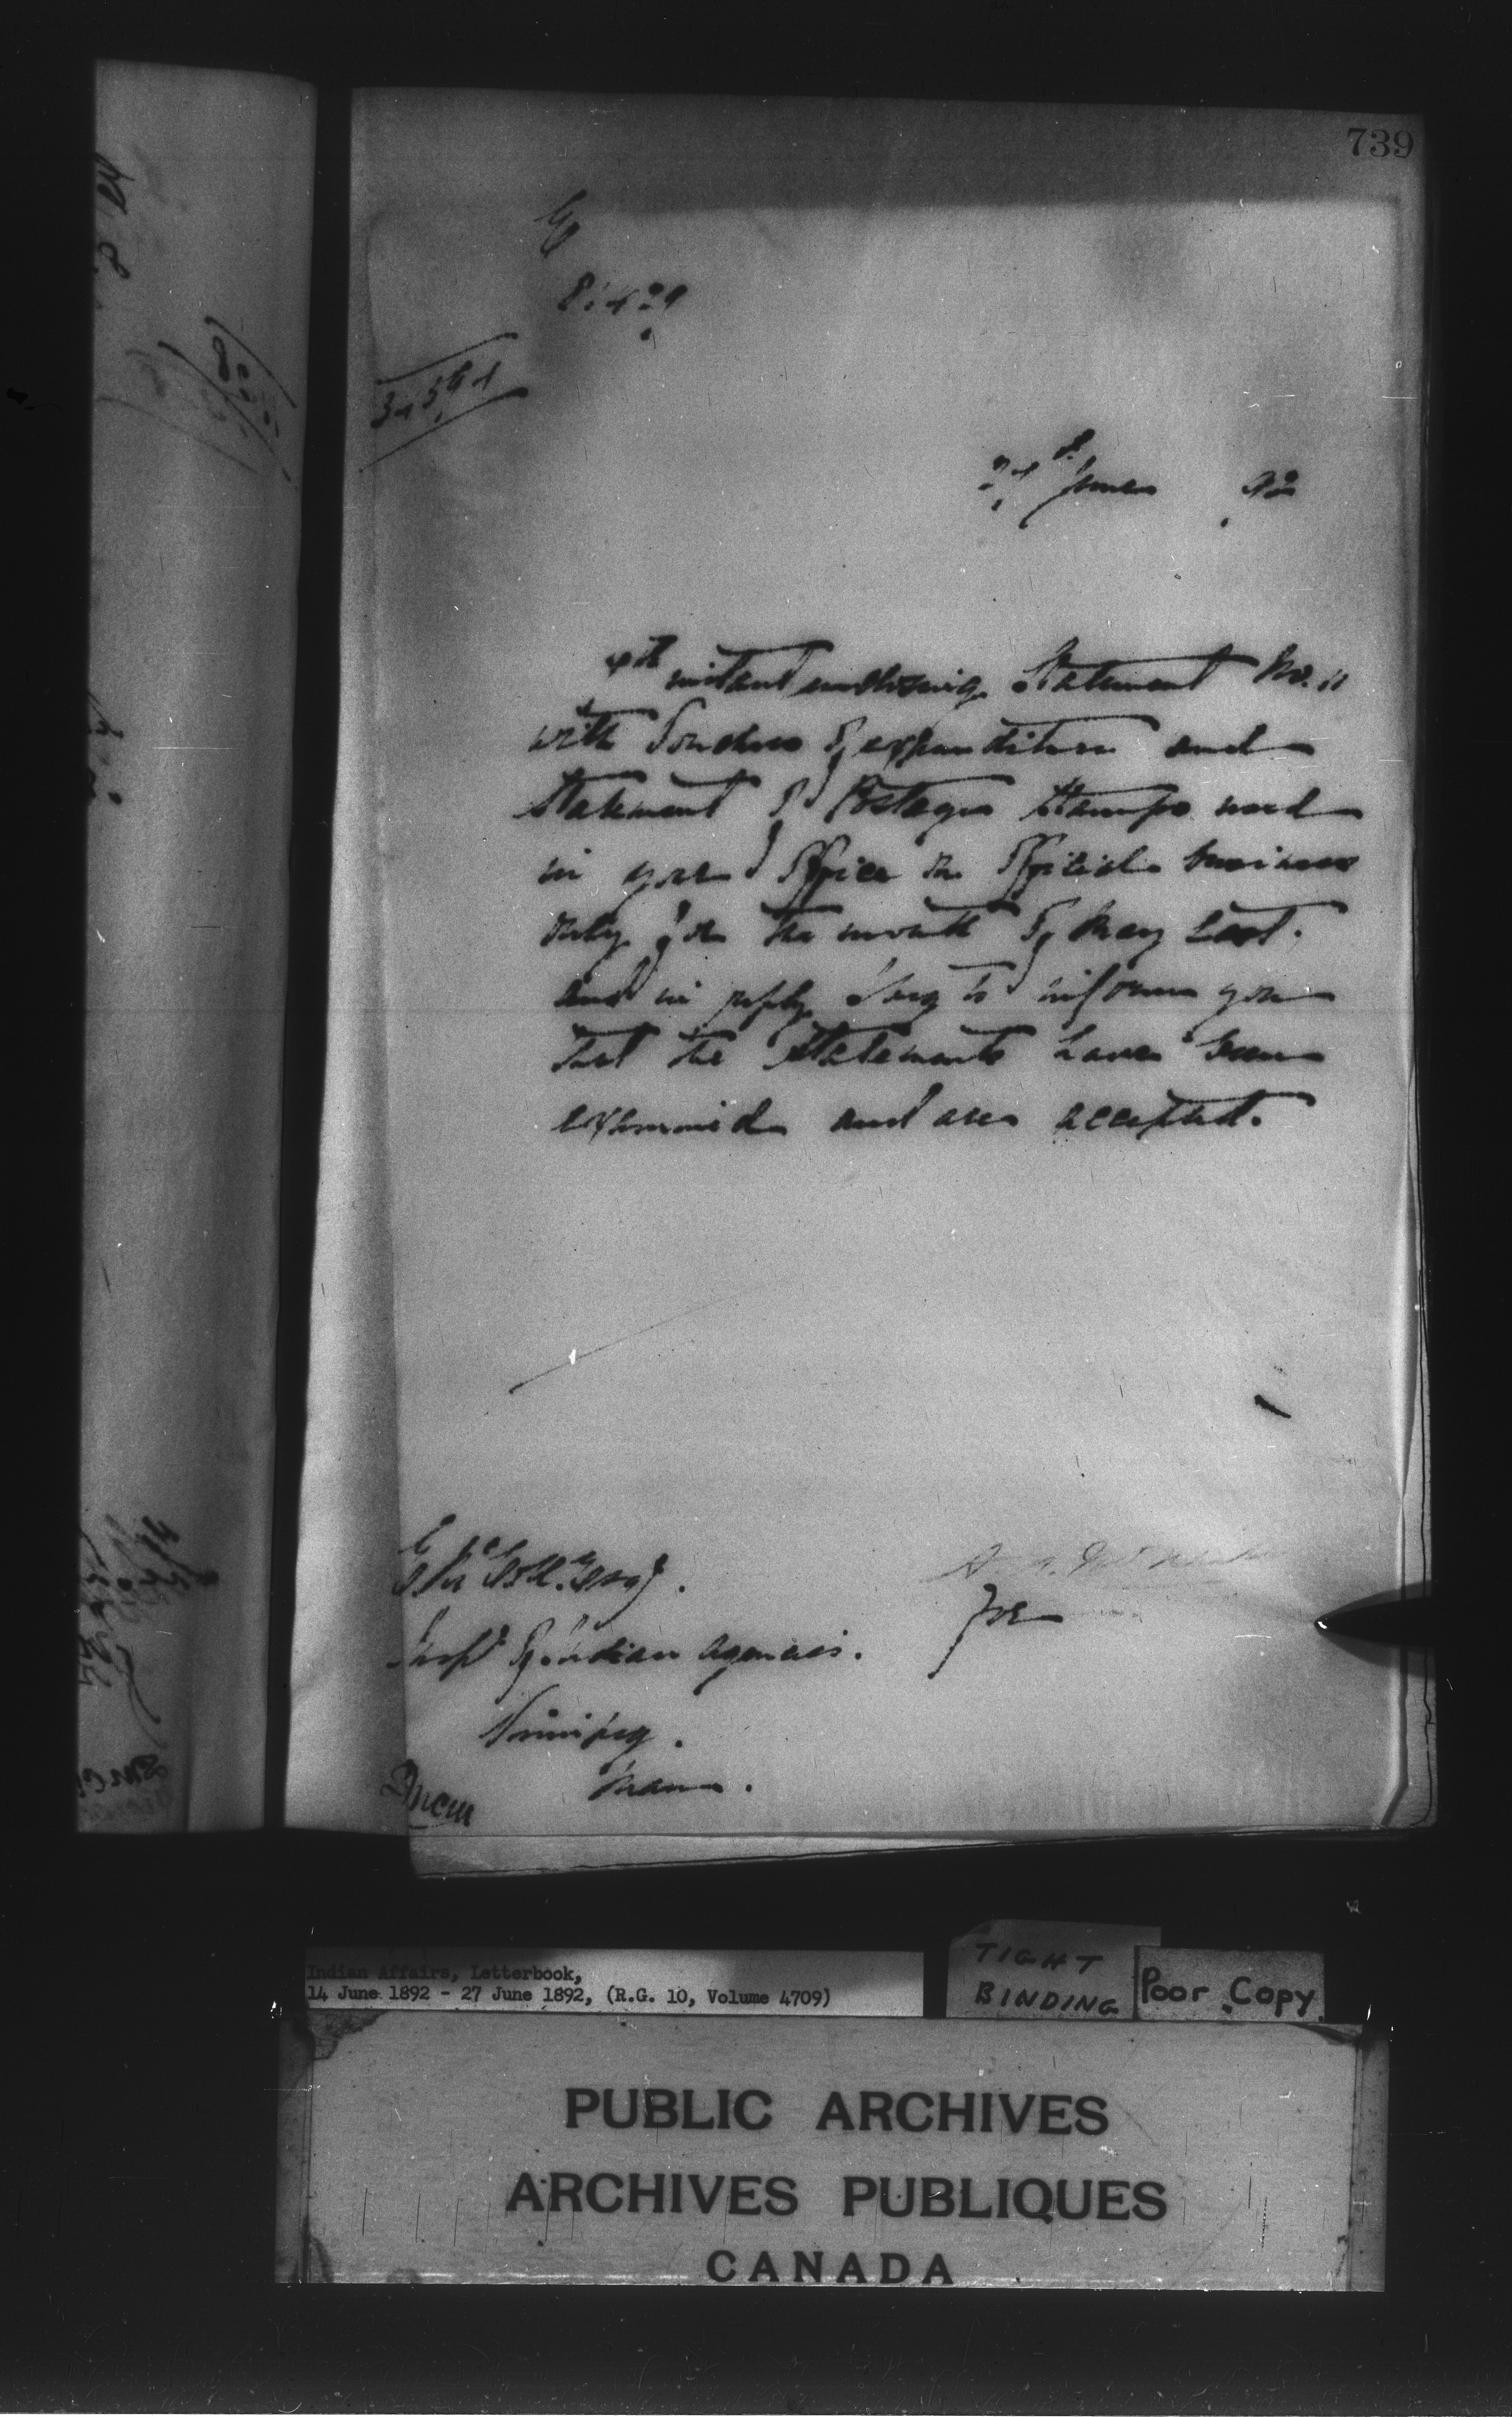 739
24th June 92
instant enclosing Statement No. 11
with Vouchers of expenditure and
Statement of Postage Stamps used
in your Office on Official business
only for the month of May last.
and in reply I beg to inform you
that the Statements have been
examined and are accepted.
for
Insp of Indian Agencies.
Winnipeg.
Man.
Indian Affairs, Letterbook,
14 June 1892 - 27 June 1892, (R.G. 10, Volume 4709)
TIGHT
BINDING
Poor Copy
PUBLIC ARCHIVES
ARCHIVES PUBLIQUES
CANADA